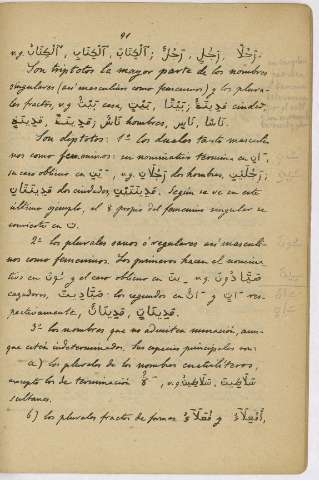 91
v.g. رَجُلًا، رَجُلٍ، رَجُلٌ; اَلْكِتَابَ، اَلْكِتَابِ، اَلْكِتَابُ.
Son triptotos la mayor parte de los nombres
singulares (así masculinos como femeninos) y los plura-
les fractos, v.g. بَيْتٌ casa, بَيْتٍ, بَيْتًا; مَدِينَةٌ ciudad
مَدِينَةٍ, مَدِينَةً; نَاسٌ hombres, نَاسٍ, نَاسًا.
Son diptotos: 1º los duales tanto masculi-
nos como femeninos: en nominativo termina en ـَانِ,
en caso oblicuo en ـَيْنِ, v.g. رَجُلَانِ dos hombres, رَجُلَيْنِ;
مَدِينَتَانِ dos ciudades, مَدِينَتَيْنِ. Según se ve en este
último ejemplo, el ة propio del femenino singular se
convierte en ت.
2º los plurales sanos ó regulares así masculi-
nos como femeninos. Los primeros hacen el nomina-
tivo en ـُونَ y el caso oblicuo en ـِينَ v.g. صَيَّادُونَ
cazadores, صَيَّادِينَ; los segundos en ـَاتٌ y ـَاتٍ res-
pectivamente, مَدِينَاتٌ, مَدِينَاتٍ.
3º los nombres que no admiten nunación, aun-
que estén indeterminados. Sus especies principales son:
a) los plurales de los nombres cuatrilíteros,
excepto los de terminación ـَةٌ, v.g. سَلَاطِينُ
sultanes.
b) los plurales fractos de formas فُعَلَاءُ y أَفْعِلَاءُ,